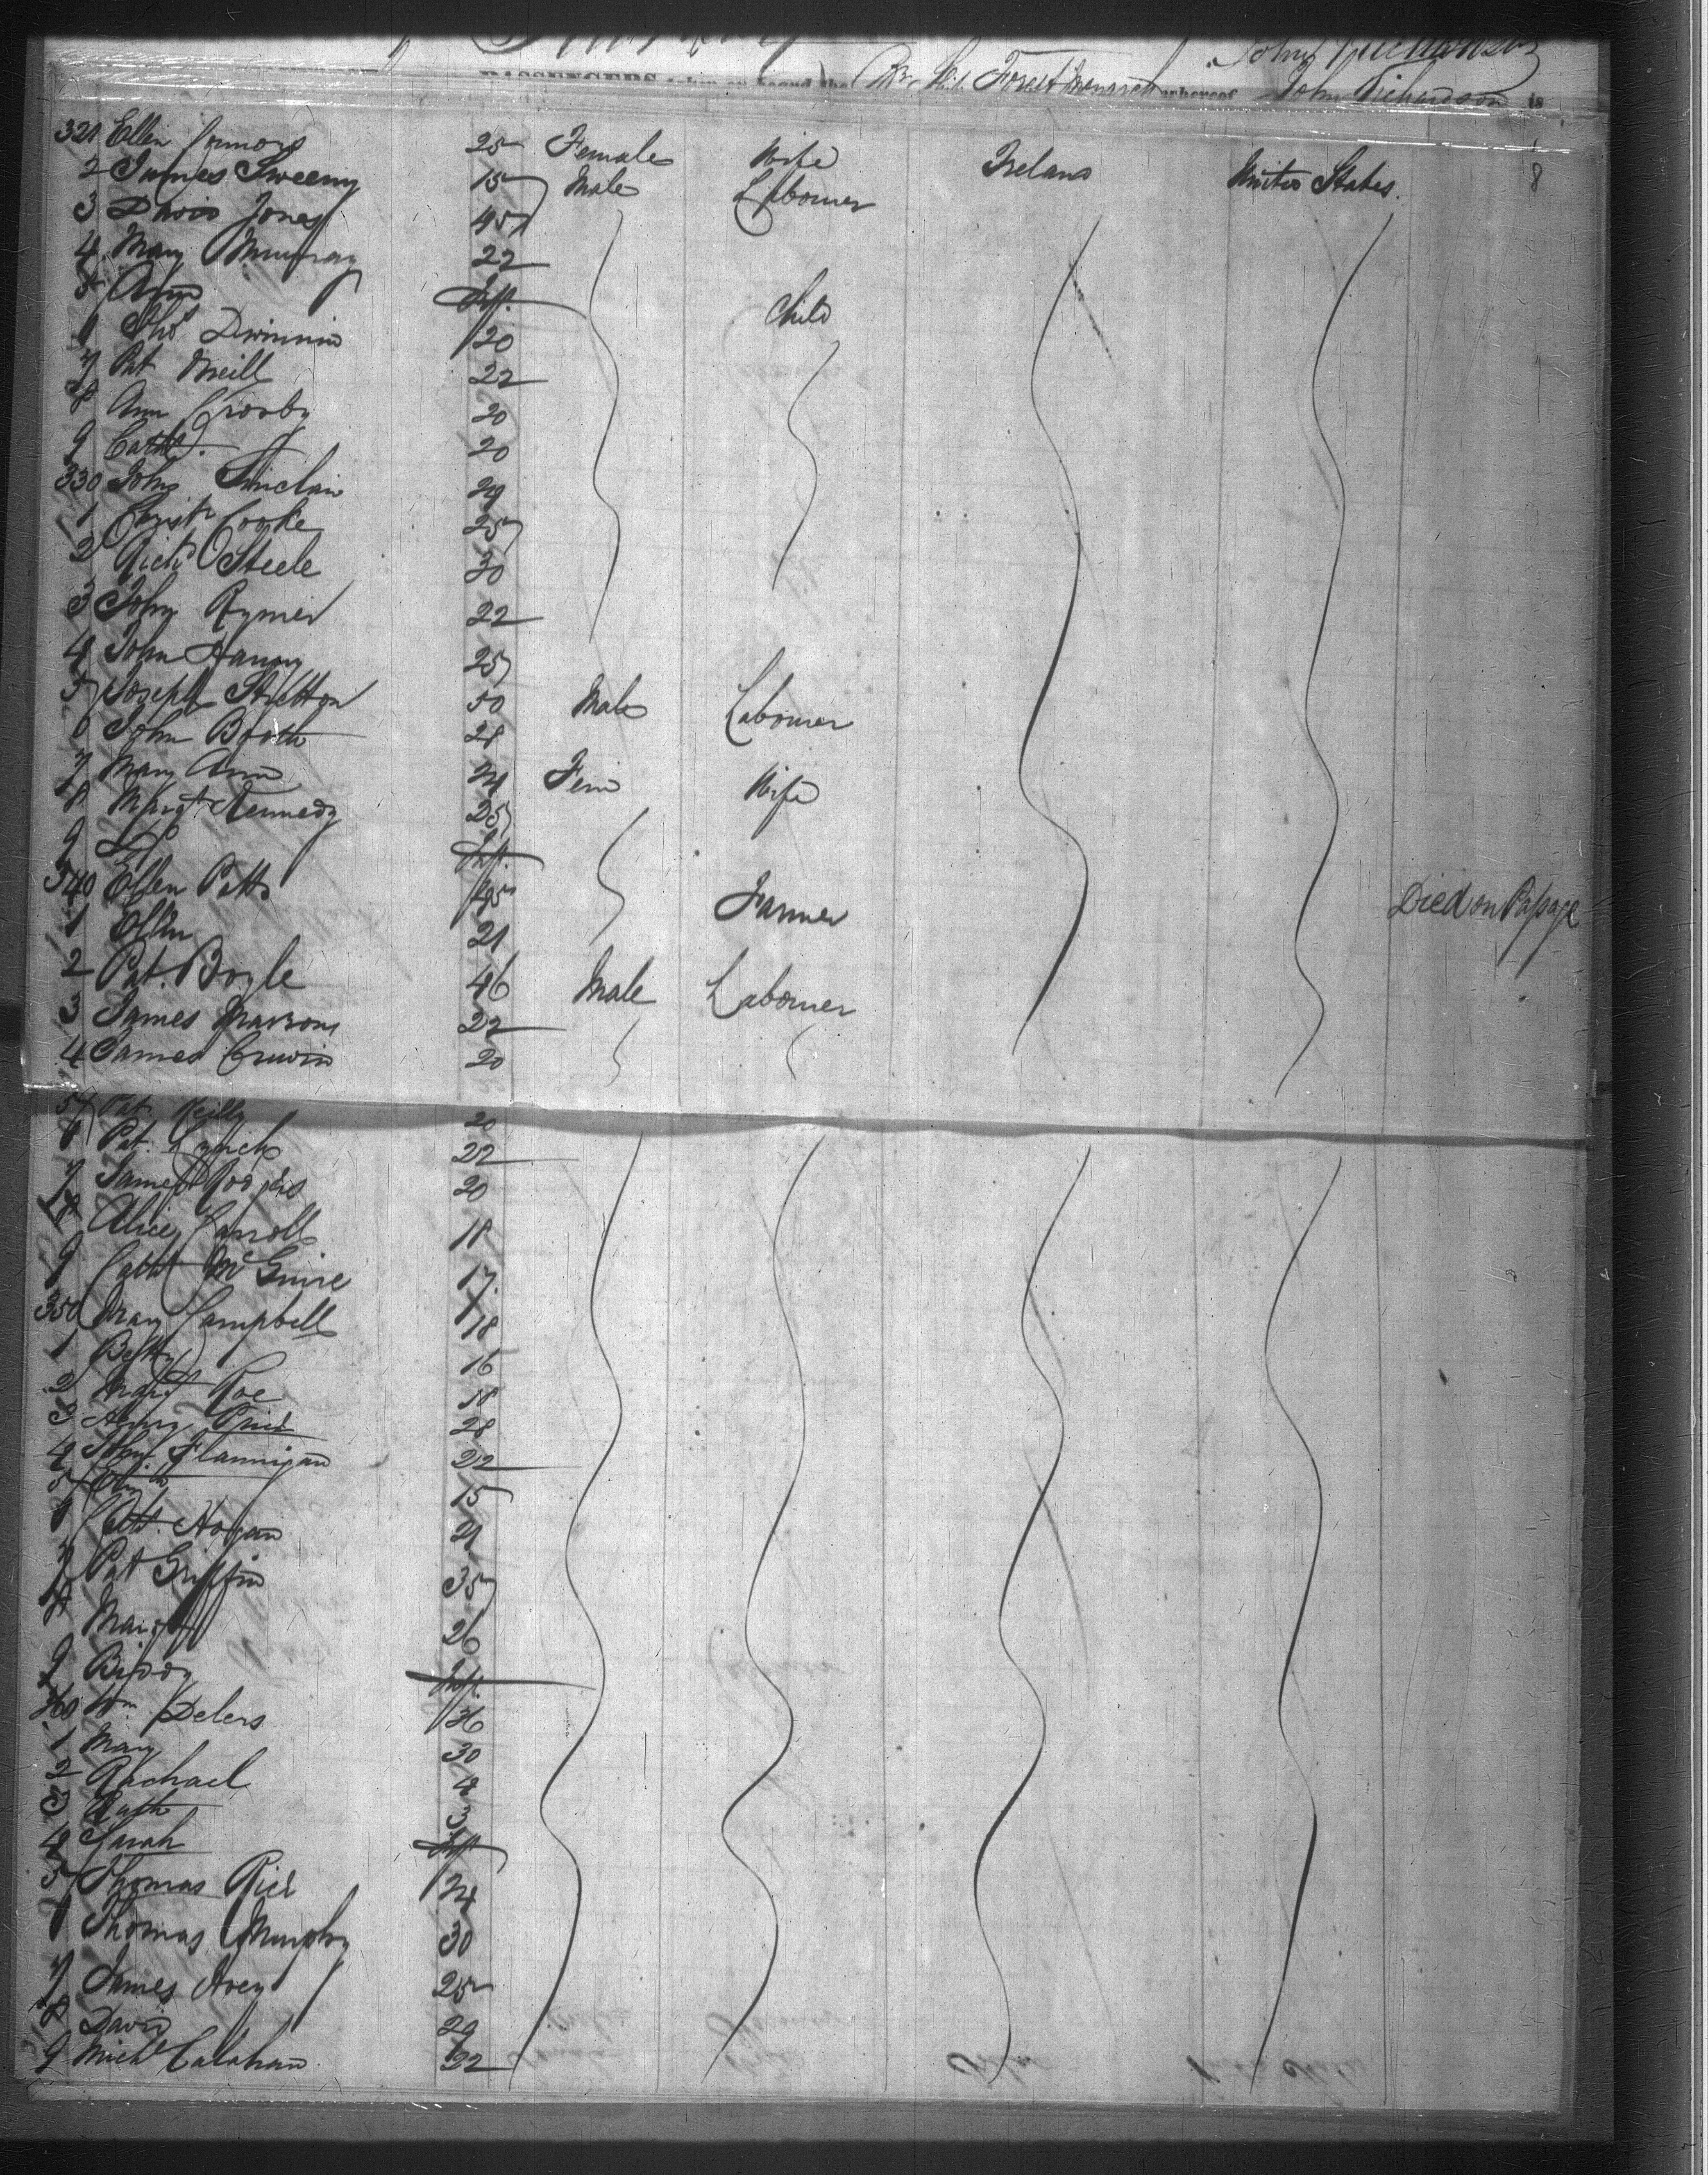 PASSENGERS taken on board the Br. Sh. Forest Monarch whereof John Richardson is
321 Ellen Connors 25 Female Wife Ireland United States
2 James Sweeny 15 Male Labourer
3 David Jones 45
4 Mary Murray 22
5 Ann Inft. Child
6 Thos Dwinnin 20
7 Pat Neill 22
8 Ann Crosby 20
9 Cath 20
330 John Sinclair 24
1 Christr Cooke 25
2 Richd Steele 30
3 John Rymer 22
4 John Hanny 25
5 Joseph Stretton 50 Male Labourer
6 John Booth 28
7 Mary Ann 24 Fem Wife
8 Margt Kennedy 25
9 Do Inft.
340 Ellen Patts 45 Farmer Died on Passage
1 Ellen 21
2 Pat. Boyle 46 Male Labourer
3 James Marrons 22
4 James Erwin 20
5 Pat Reilly 20
6 Pat. Lynch 22
7 James Rogers 20
8 Alice Carroll 18
9 Catht McGuire 17
350 Mary Campbell 18
1 Betty 16
2 Margt Roe 18
3 Henry Price 28
4 John Flannigan 22
5 15
6 Cath. Hogan 21
7 Pat Griffin 35
8 Margt 26
9 Biddy Inft.
360 Wm Delers 36
1 Mary 30
2 Rachael 4
3 Ruth 3
4 Sarah Inft
5 Thomas Rice 24
6 Thomas Murphy 30
7 James Hoey 25
8 David 29
9 Michl Calahan 22